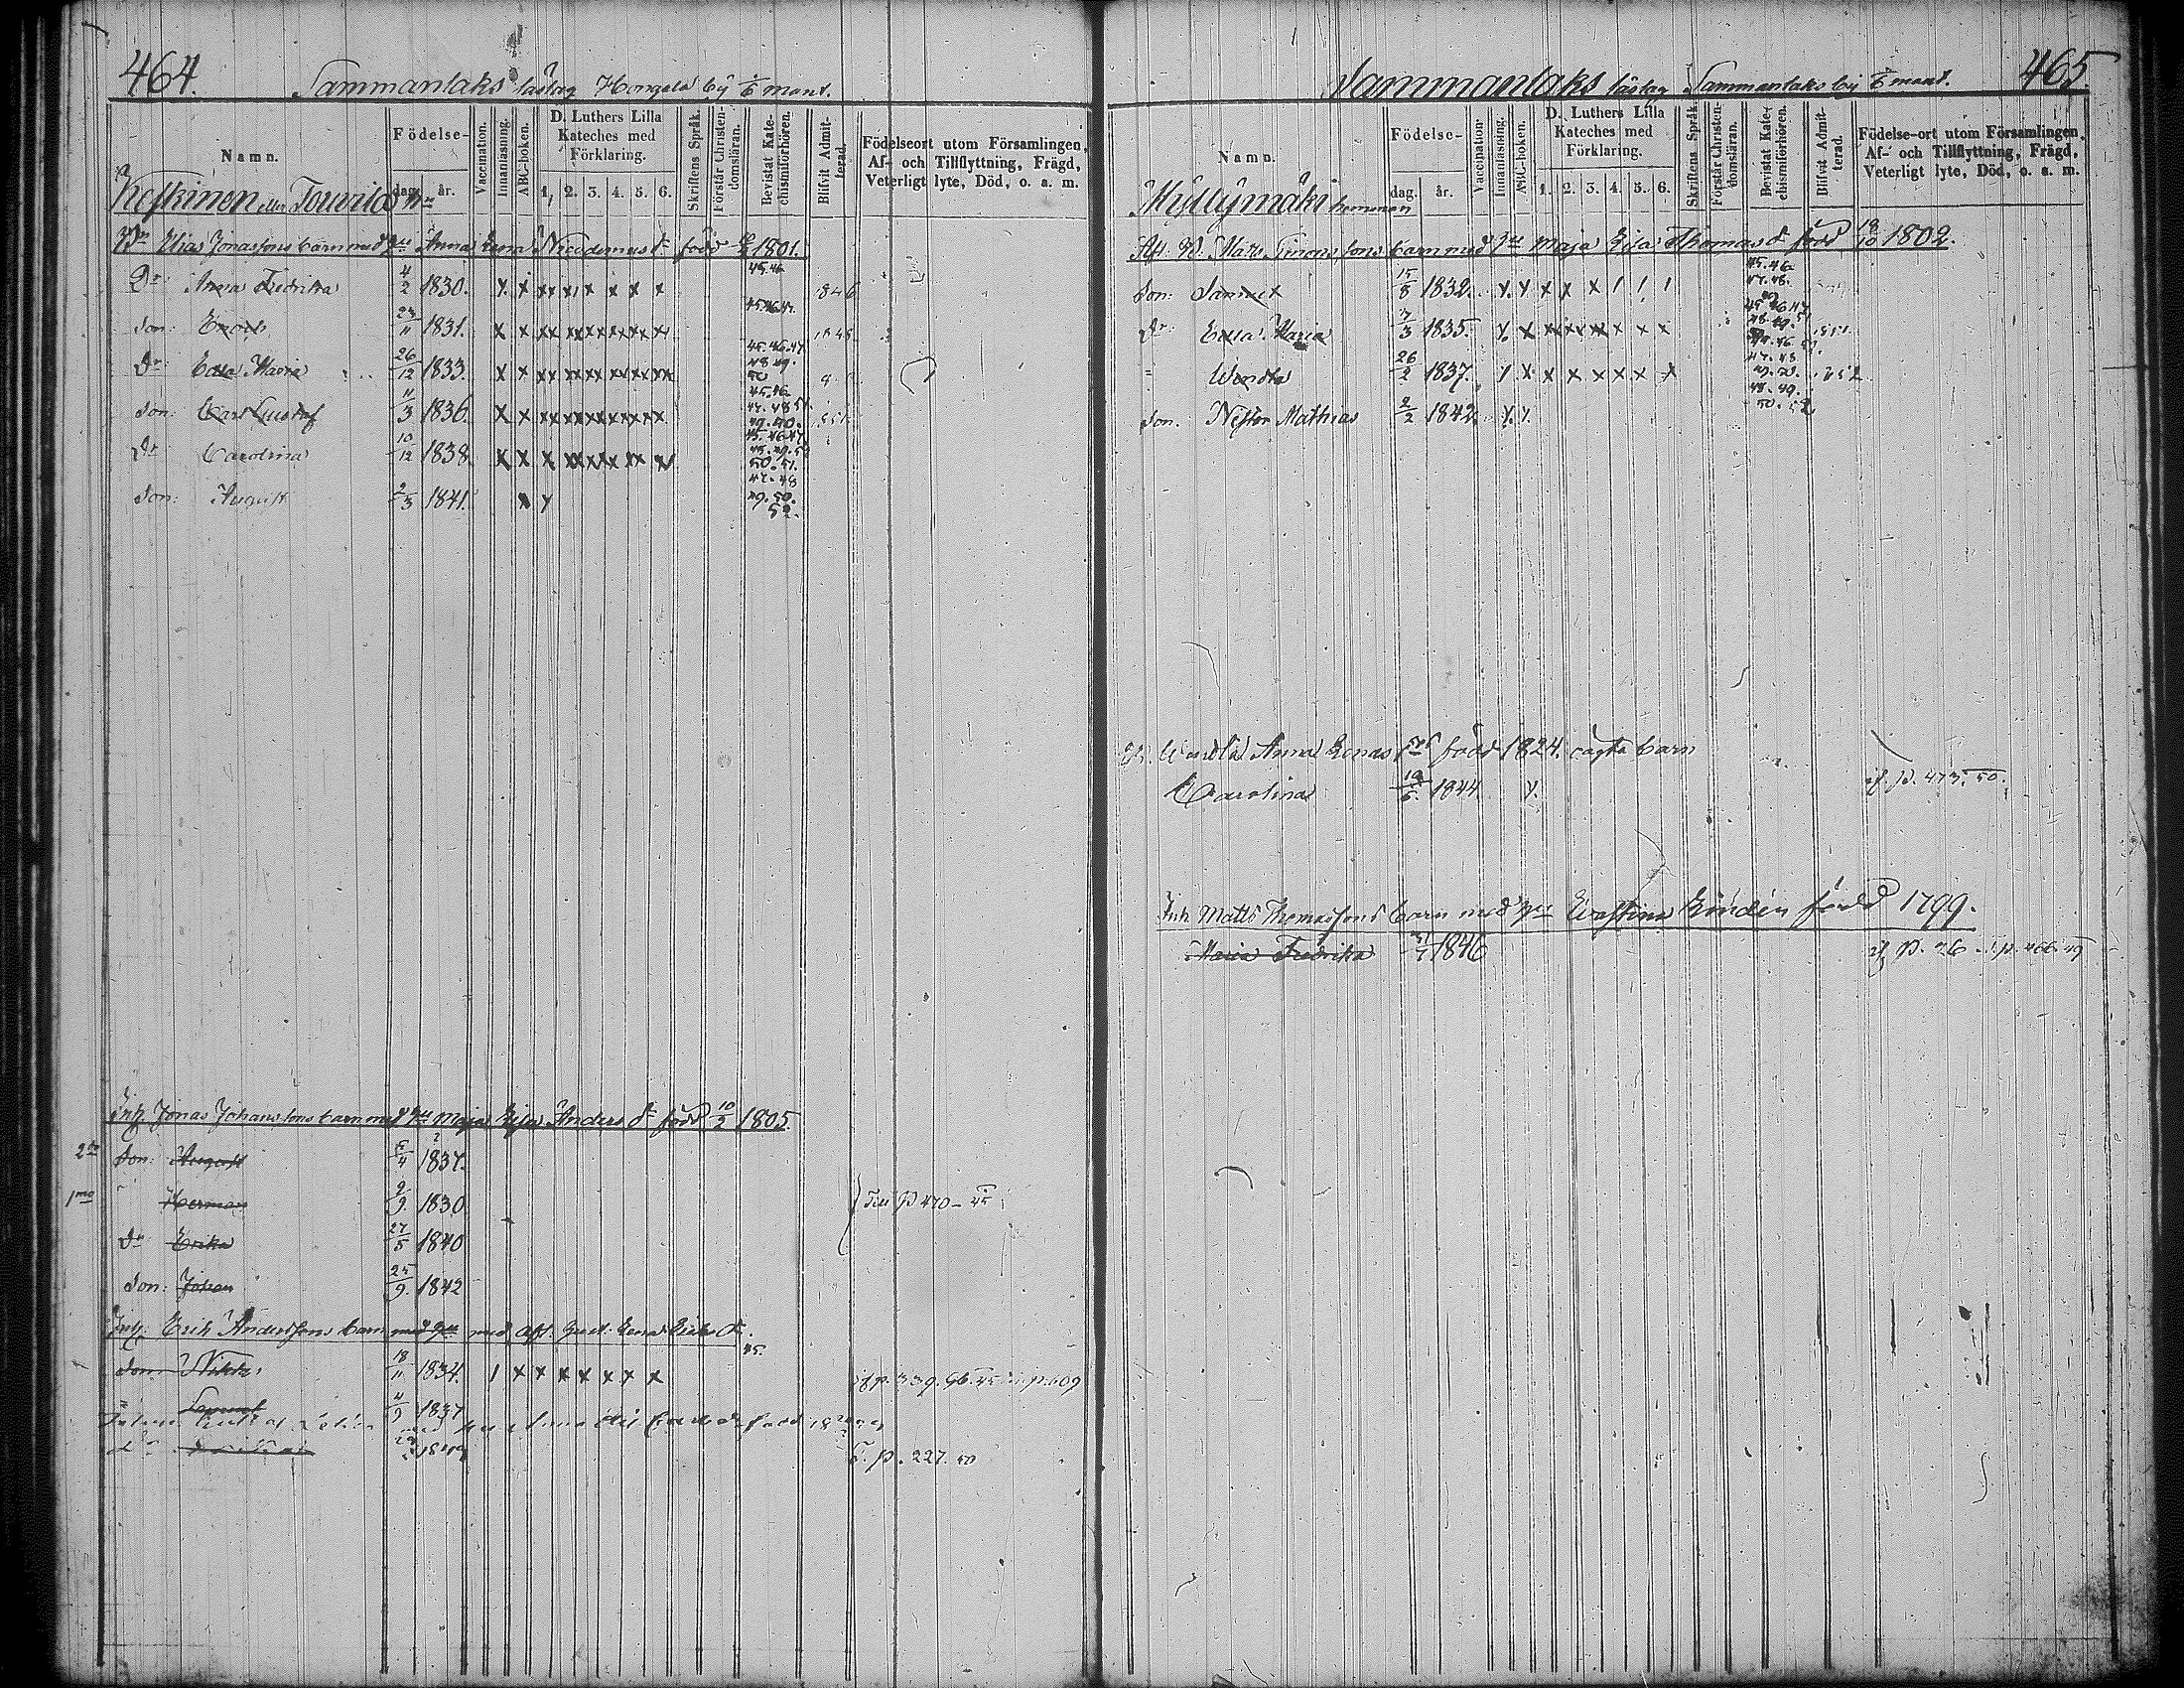 464.
Sammanlaks läslag Hongola by 1/6 mant.
Namn.
Födelse-
dag. år.
Vaccination.
Innanläsning.
ABC-boken.
D. Luthers Lilla
Kateches med
Förklaring.
1. 2. 3. 4. 5. 6.
Skriftens Språk.
Förstår Christen-
domsläran.
Bevistat Kate-
chismiförhören.
Blifvit Admit-
terad.
Födelseort utom Församlingen,
Af- och Tillflyttning, Frägd,
Veterligt lyte, Död, o. a. m.
Keskinen eller Touvila
Elias Jonassons barn med Anna Lena Nicodemus dr född 1801.
Dr Anna Fredrika 4/2 1830. x x xx x x x x x 45.46 1846
Son: Enoch 23/11 1831. x x xx xx xx xx xx xx 45.46.47. 1848
Dr Edla Maria 26/12 1833. x x xx xx xx xx xx xx 45.46.47 48 49. 50
Son: Carl Gustaf 11/3 1836. x x xx xx xx xx xx x 45.46 47.48 51 49.50. 1851
Dr Carolina 10/12 1838. x x x xx xx xx xx xx 45.46.47 48.49.52 50.51.
Son: August 2/3 1841. x y 47.48 49.50. 52.
Inh. Jonas Johanssons barn med Maja Lisa Anders dr född 10/2 1805
2do Son: August 5/4 1837.
1mo Herman 2/9. 1830
Dr Erika 27/5 1840
Till p 470-45
Son: Johan 25/9. 1842
Inh. Erik Anderssons barn med afl. Lena Eriks dr.
Son: 18/11 1834. 1 x x x x x x x 45. p. 339. 96. 45 p. 609
4/9 1837
född
1849 T. p. 227. 50
465.
Sammanlaks läslag Sammanlaks by 1/6 mant.
Namn.
Födelse-
dag. år.
Vaccination.
Innanläsning.
ABC-boken.
D. Luthers Lilla
Kateches med
Förklaring.
1. 2. 3. 4. 5. 6.
Skriftens Språk.
Förstår Christen-
domsläran.
Bevistat Kate-
chismiförhören.
Blifvit Admit-
terad.
Födelse-ort utom Församlingen,
Af- och Tillflyttning, Frägd,
Veterligt lyte, Död, o. a. m.
Myllymäki hemman
Afl. B. Matts Simonssons barn med Maja Lisa Thomas dr född 18/10 1802.
Son: Samuel 15/8 1832. y. y x x x / / / 45.46 47.48.
Dr Edla Maria 7/3 1835. y. x xx xx xx x x x 45.46.47 48.49.51 1851
" Wendla 26/2 1837. y x x x x x x x 45.46 47.48 49.50. 1852
Son. Nestor Mathias 2/2 1842. y. y. 48.49. 50.52
Wendla Anna Jonas dr född 1824. oägta barn
Carolina 19/5. 1844 y. p. 473. 50.
Inh. Matts Thomassons barn med Evastina Lindén född 1799.
Maria Fredrika 1846 af p. 26 p. 466. 49